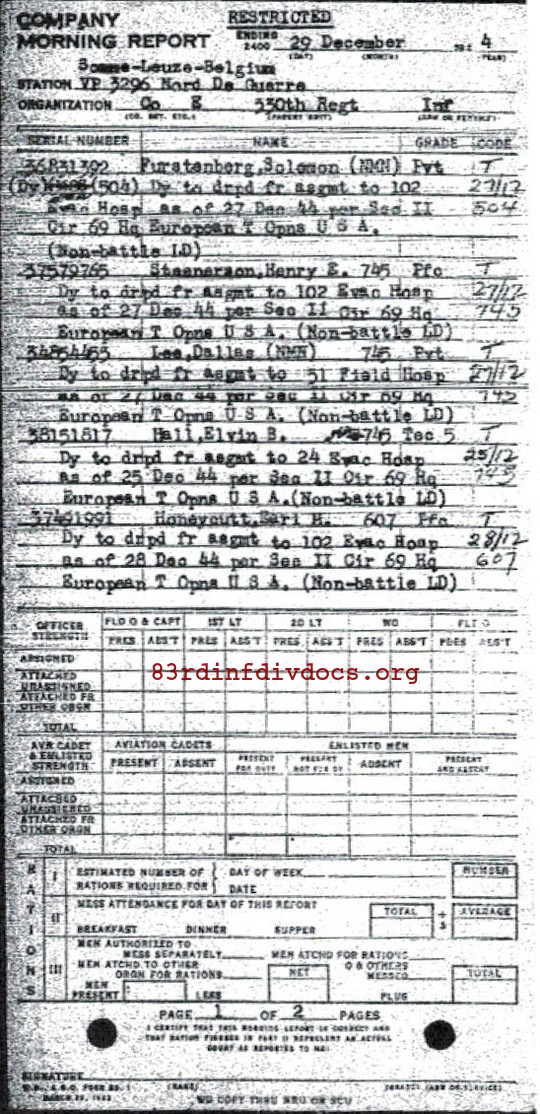 COMPANY
MORNING REPORT
RESTRICTED
ENDING 2400 29 December 194 4
(DAY) (MONTH) (YEAR)
Somme-Leuze-Belgium
STATION VP 3296 Nord De Guerre
ORGANIZATION Co E 330th Regt Inf
SERIAL NUMBER NAME GRADE CODE
36831392 Furstenberg, Solomon (NMN) Pvt T
(504) Dy to drpd fr asgmt to 102 27/12
Evac Hosp as of 27 Dec 44 per Sec II 504
Cir 69 Hq European T Opns U S A.
(Non-battle LD)
37579765 Steenerson, Henry E. 745 Pfc T
Dy to drpd fr asgmt to 102 Evac Hosp 27/12
as of 27 Dec 44 per Sec II Cir 69 Hq 745
European T Opns U S A. (Non-battle LD)
34854455 Lee, Dallas (NMN) 745 Pvt T
Dy to drpd fr asgmt to 51 Field Hosp 27/12
as of 27 Dec 44 per Sec II Cir 69 Hq 745
European T Opns U S A. (Non-battle LD)
38151817 Hall, Elvin B. 745 Tec 5 T
Dy to drpd fr asgmt to 24 Evac Hosp 25/12
as of 25 Dec 44 per Sec II Cir 69 Hq 745
European T Opns U S A. (Non-battle LD)
37491991 Honeycutt, Earl H. 607 Pfc T
Dy to drpd fr asgmt to 102 Evac Hosp 28/12
as of 28 Dec 44 per Sec II Cir 69 Hq 607
European T Opns U S A. (Non-battle LD)
OFFICER STRENGTH FLD O & CAPT 1ST LT 2D LT WO FLT O
PRES ABS'T PRES ABS'T PRES ABS'T PRES ABS'T PRES ABS'T
ASSIGNED
83rdinfdivdocs.org
ATTACHED UNASSIGNED
ATTACHED FR OTHER ORGN
TOTAL
AVN CADET & ENLISTED STRENGTH AVIATION CADETS ENLISTED MEN
PRESENT ABSENT PRESENT FOR DUTY PRESENT NOT FOR DY ABSENT PRESENT AND ABSENT
ASSIGNED
ATTACHED UNASSIGNED
ATTACHED FR OTHER ORGN
TOTAL
RATIONS
I ESTIMATED NUMBER OF RATIONS REQUIRED FOR DAY OF WEEK DATE NUMBER
II MESS ATTENDANCE FOR DAY OF THIS REPORT TOTAL ÷ 3 AVERAGE
BREAKFAST DINNER SUPPER
III MEN AUTHORIZED TO MESS SEPARATELY MEN ATCHD FOR RATIONS
MEN ATCHD TO OTHER ORGN FOR RATIONS NET O & OTHERS MESSED TOTAL
MEN PRESENT LESS PLUS
PAGE 1 OF 2 PAGES
I CERTIFY THAT THIS MORNING REPORT IS CORRECT AND
THAT RATION FIGURES IN PART II REPRESENT AN ACTUAL
COUNT AS REPORTED TO ME:
SIGNATURE
W.D., A.G.O. FORM NO. 1 (NAME)
WD COPY THRU MRU OR SCU